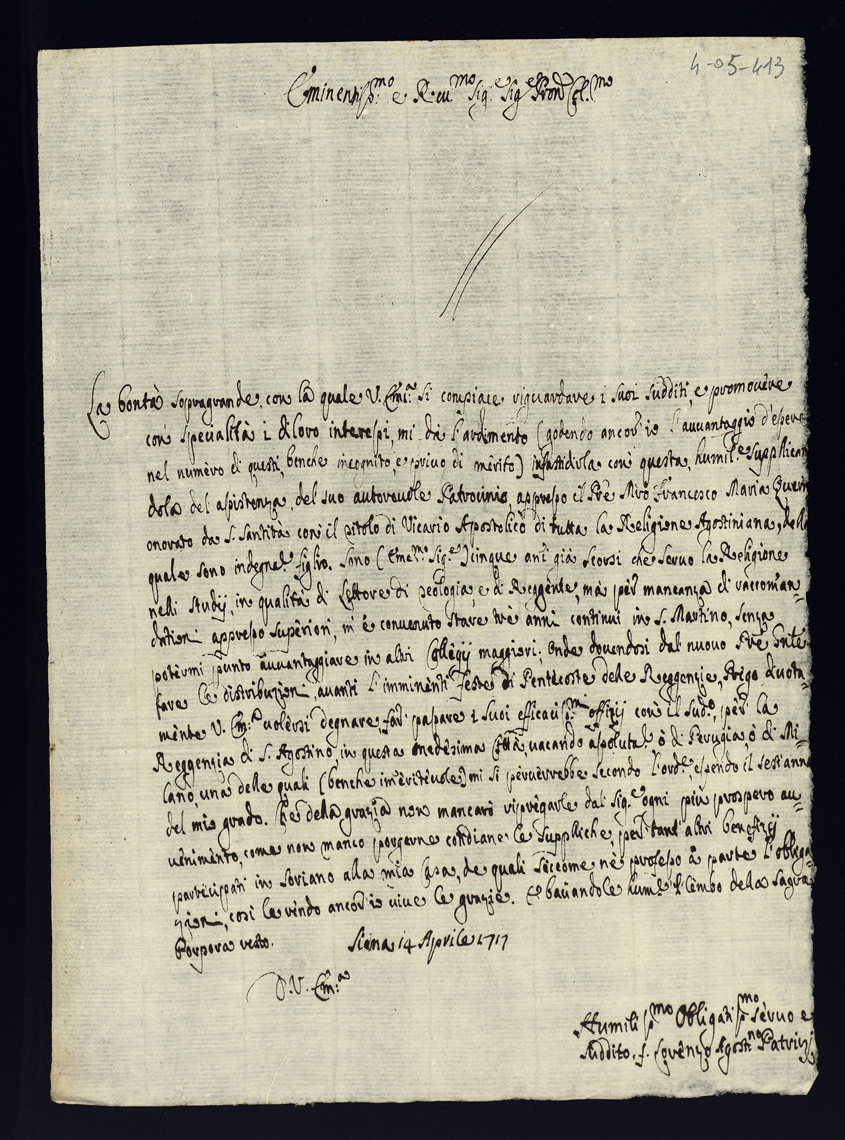 4-05-413
Eminentiss.mo e R.mo Sig.e Sig.e Pron.e Col.mo
La bontà sopragrande, con la quale V. Em.a si compiace riguardare i suoi sudditi, e promovere
con specialità i di loro interessi, mi dà l'ardimento (godendo ancor io l'avvantaggio d'essere
nel numero di questi, benche incognito, e privo di merito) infastidirla con questa, humil.e supplican
dola del assistenza, del suo autorevole Patrocinio appresso il Pre Mro Francesco Maria Quer
onorato da S. Santità con il titolo di Vicario Apostolico di tutta la Religione Agostiniana, della
quale sono indegno figlio. Sono (Eme.mo Sig.e) cinque anni già scorsi che servo la Religione
nelli Studij, in qualità di Lettore di Teologia, e di Reggente, mà per mancanza di raccoman-
dationi appresso superiori, m'è convenuto stare trè anni continui in S. Martino, senza
potermi punto avvantaggiare in altri Collegij maggiori; Onde dovendosi dal nuovo Pre Gnle
fare le distribuzioni avanti l'imminenti Feste di Pentecoste delle Reggenzie, Prego divota-
mente V. Em.a volersi degnare, far passare i suoi efficacissimi offizij con il sud.o, per la
Reggenzia di S. Agostino, in questa medesima Città, vacando assolutate ò di Perugia, ò di Mi-
lano, una delle quali (benche immeritevole) mi si perverrebbe secondo l'ord.e essendo il sest'anno
del mio grado. Che della grazia non mancarò ripregarle dal Sig.e ogni più prospero av-
venimento, come non manco porgerne cotidiane le suppliche, per tant'altri benefizij
participati in Soriano alla mia Casa, de quali siccome ne professo à parte l'obliga
zioni, così le rendo ancor io vive le grazie. E baciandole humil.e l lembo della sagra
Porpora resto.   Siena 14 Aprile 1717
D. V. Em.a
Humiliss.mo Obligatiss.mo Servo e
suddito f. Lorenzo Agosti.no Patrizj